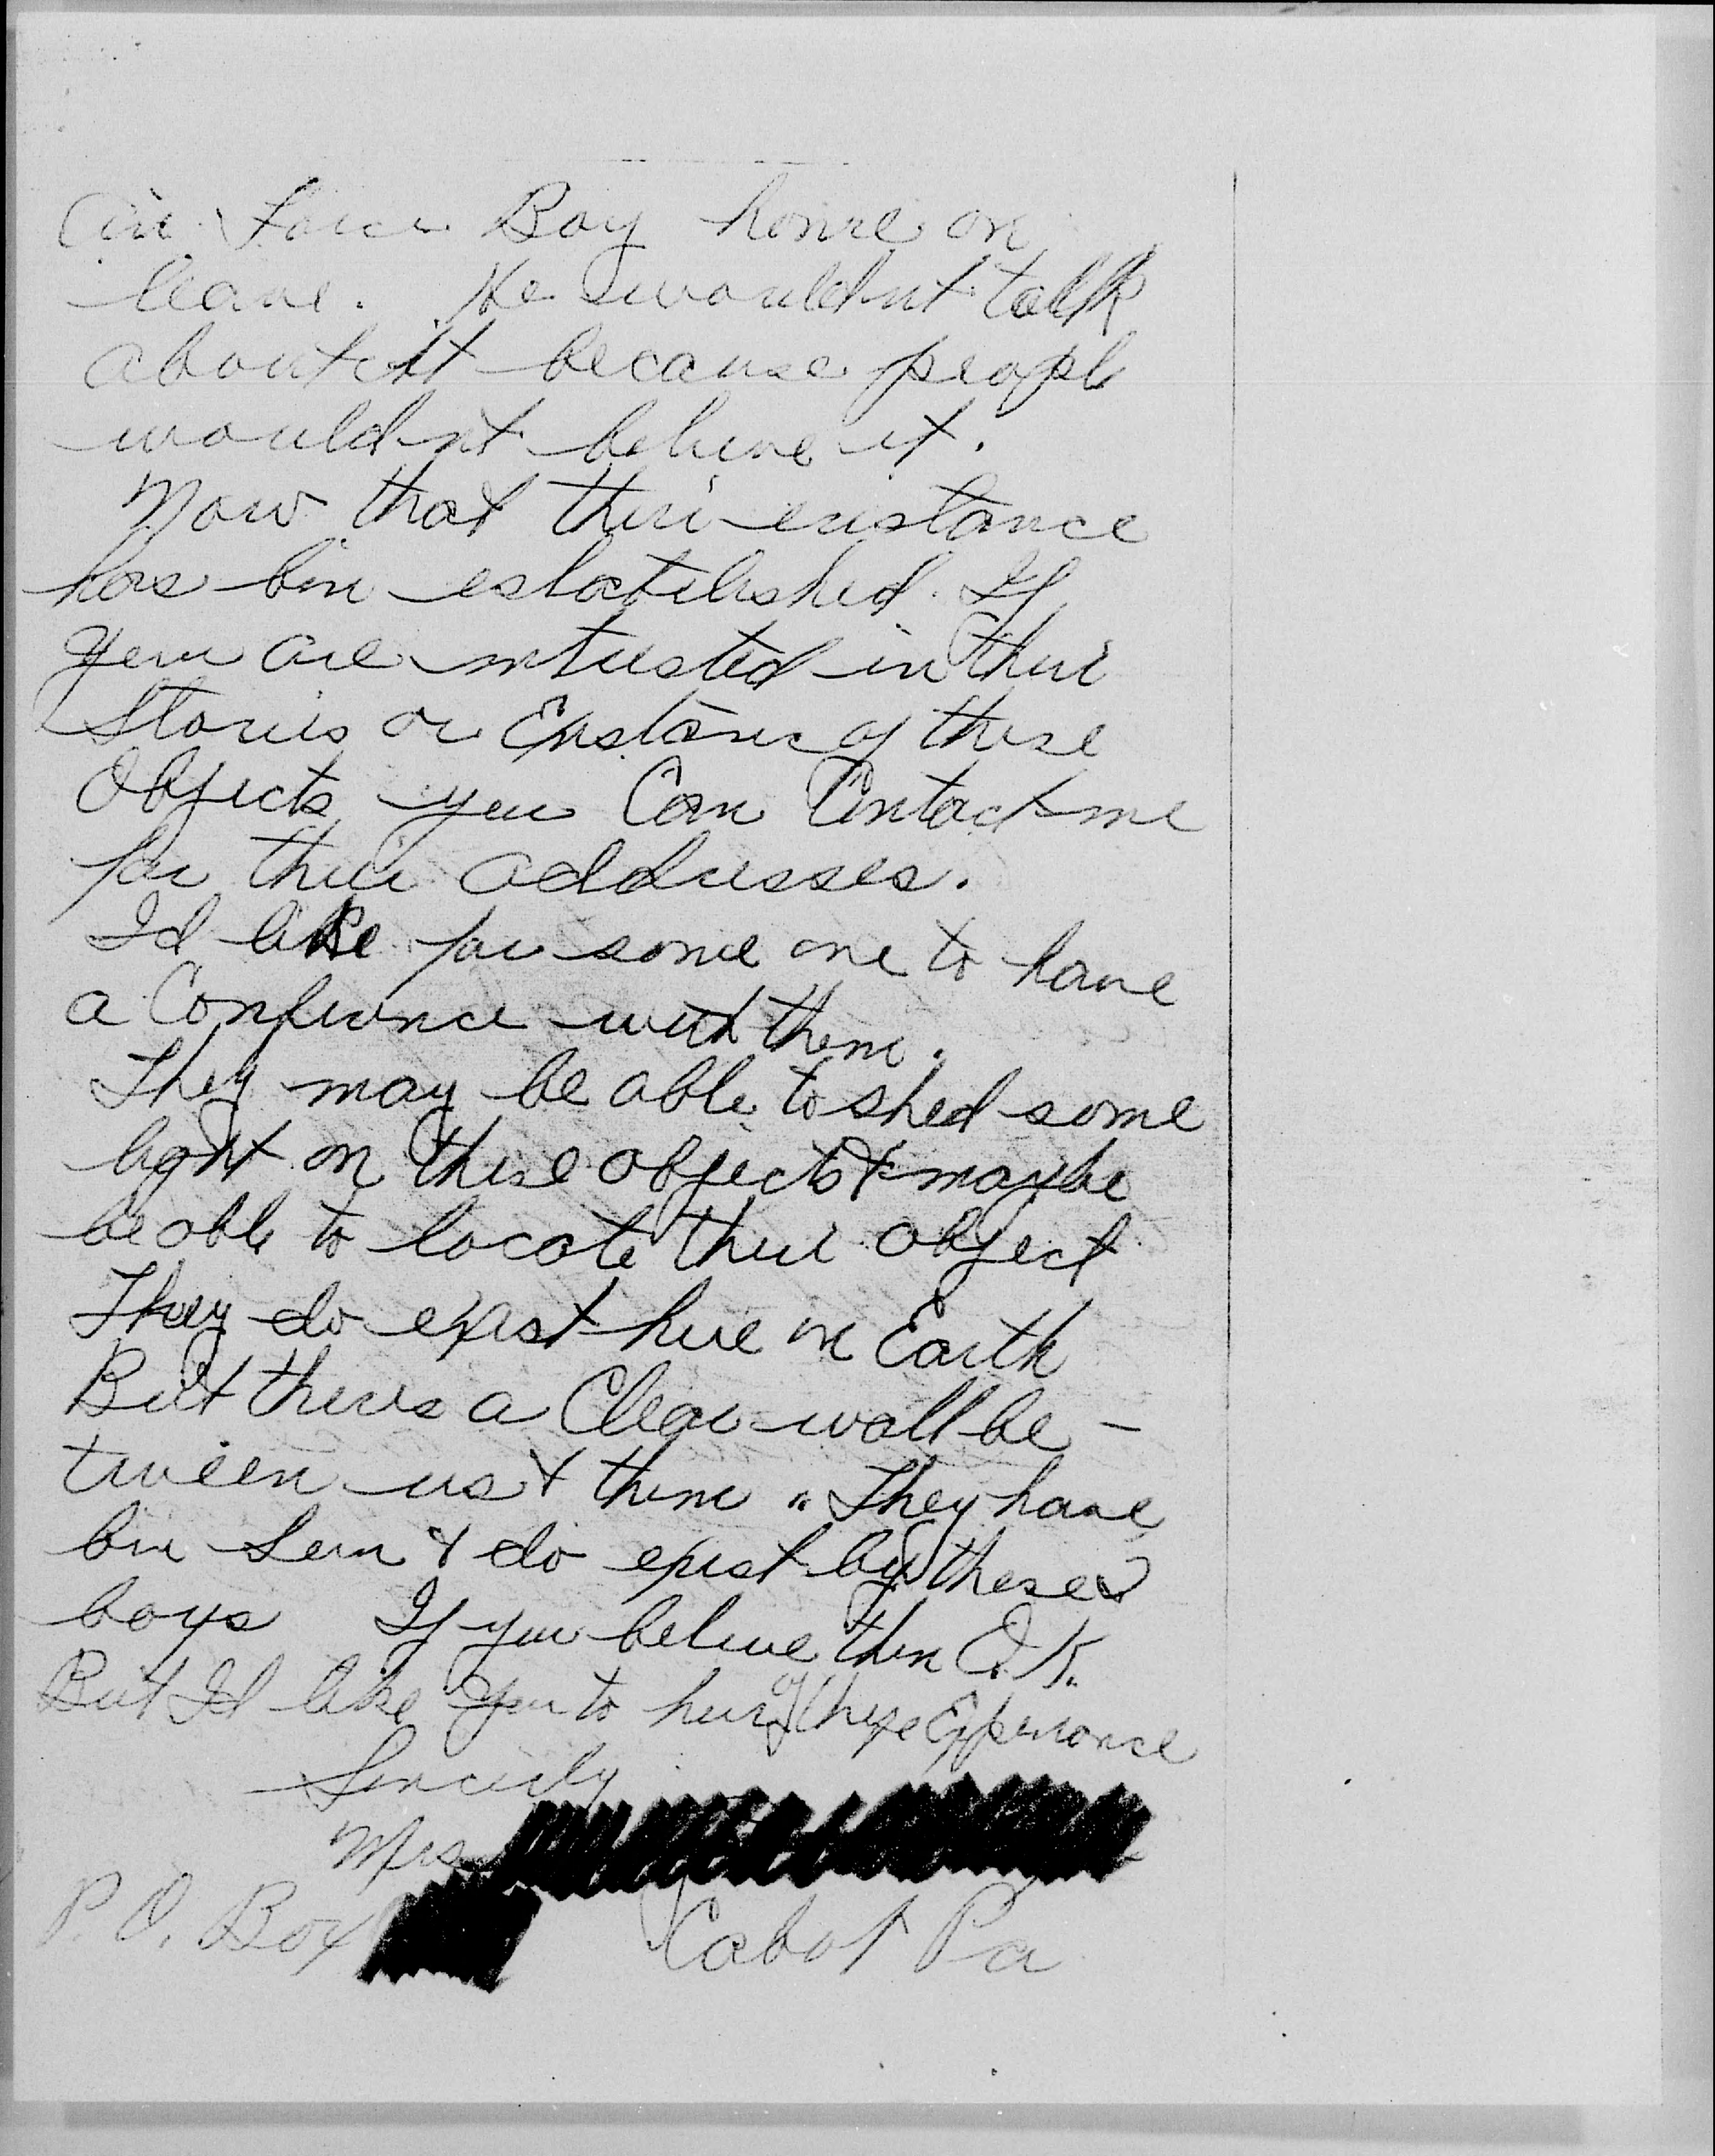 Air Force Boy home on
leave. He wouldnt talk
about it because people
wouldnt believe it.
Now that their existance
has bin established. If
you are intrested in their
Stories or Existance of these
Objects you Can Contact me
for their addresses.
Id like for some one to have
a Conference with them.
They may be able to shed some
light on these objects & maybe
be able to locate their object
They do exist here on Earth
But theres a Clear wall be-
tween us & them. They have
bin seen & do exist by these
boys If you believe then O.K.
But Id like you to hear of these Experiance
Sincerly
Mrs
P.O. Box Cabot Pa